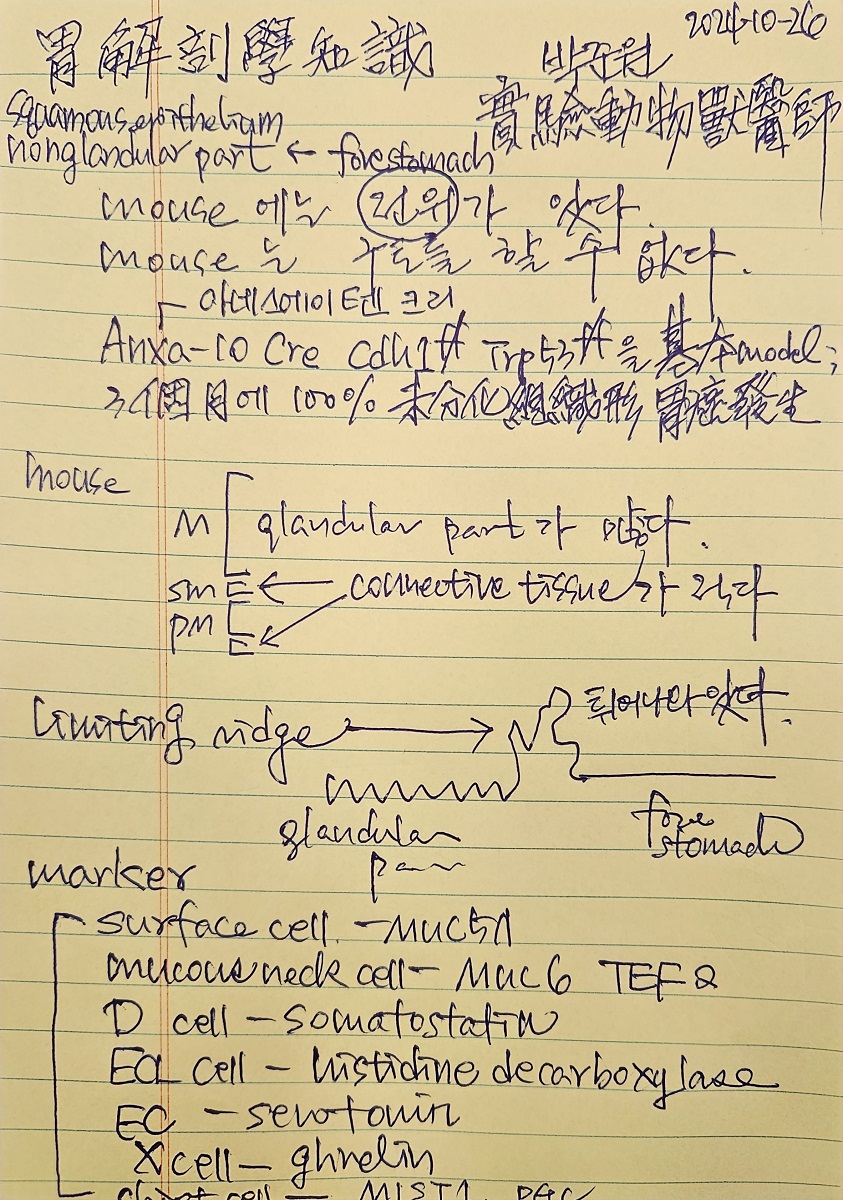 2024-10-26
胃解剖學知識 박준원
實驗動物獸醫師
squamous epithelium
nonglandular part ← forestomach
mouse 에는 전위가 있다.
mouse 는 구토를 할 수 없다.
Anxa-10 Cre Cdh1 f/f Trp53 f/f을 基本 model;
3個月에 100% 未分化組織形 胃癌發生
mouse
M glandular part가 많다.
sm ← connective tissue가 적다
pm
limiting ridge → 튀어나와 있다.
glandular part
fore stomach
marker
surface cell. - MUC5A
mucous neck cell - MUC6 TFF2
D cell - somatostatin
ECL cell - histidine decarboxylase
EC - serotonin
X cell - ghrelin
chief cell - MIST1, PGC